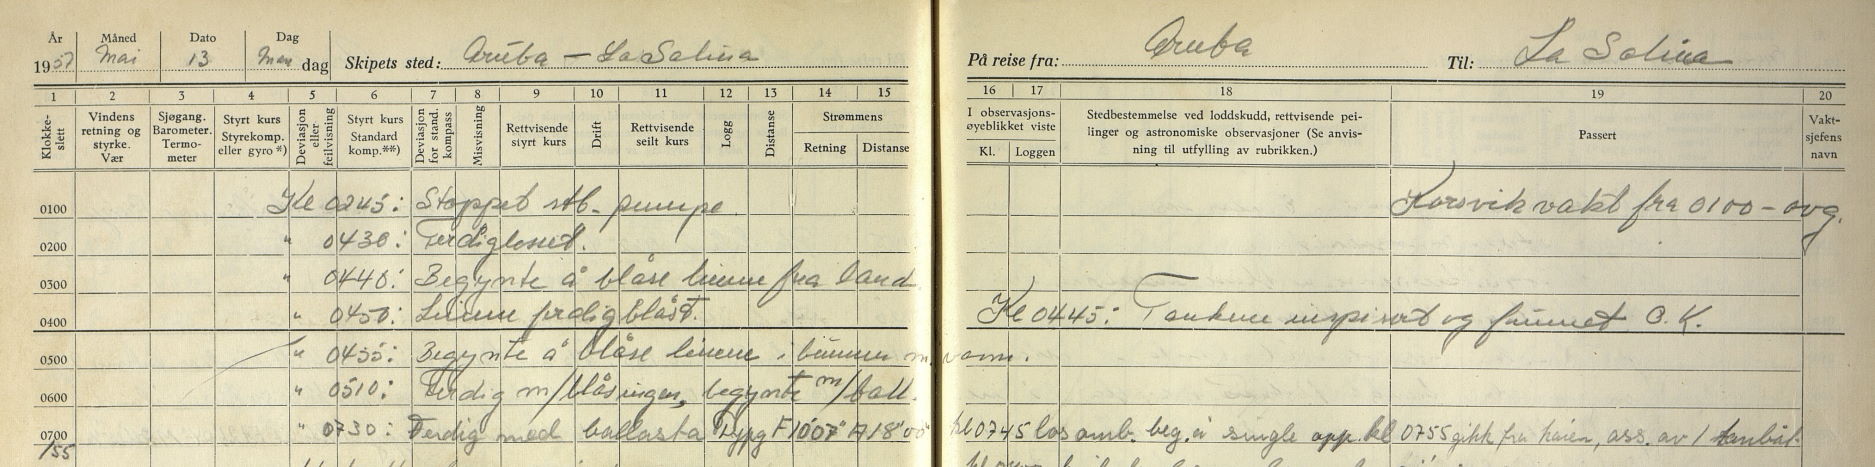 År Måned Dato Dag
1957 Mai 13 Man dag Skipets sted: Aruba — La Salina
På reise fra: Aruba Til: La Salina
1 2 3 4 5 6 7 8 9 10 11 12 13 14 15
16 17 18 19 20
Klokkeslett
Vindens retning og styrke. Vær
Sjøgang. Barometer. Termometer
Styrt kurs Styrekomp. eller gyro *)
Deviasjon eller feilvisning
Styrt kurs Standard komp.**)
Deviasjon for stand. kompass
Misvisning
Rettvisende styrt kurs
Drift
Rettvisende seilt kurs
Logg
Distanse
Strømmens
Retning Distanse
I observasjons-øyeblikket viste
Kl. Loggen
Stedbestemmelse ved loddskudd, rettvisende pei-
linger og astronomiske observasjoner (Se anvis-
ning til utfylling av rubrikken.)
Passert
Vakt-sjefens navn
0100 Kl 0245: Stoppet stb. pumpe Korsvik vakt fra 0100 - avg.
0200 " 0430: Ferdiglosset.
0300 " 0440: Begynte å blåse linene fra land
0400 " 0450: Linene ferdig blåst. Kl 0445: Tankene inspisert og funnet O.K.
0500 " 0455: Begynte å blåse linene i bunnen m. vann.
0600 " 0510: Ferdig m/blåsingen, begynte m/ball.
0700 " 0730: Ferdig med ballasta Dypg F 10'07" A 18'00" kl 0745 los omb. beg. å single opp. kl 0755 gikk fra kaien, ass. av 1 taubåt.
/55